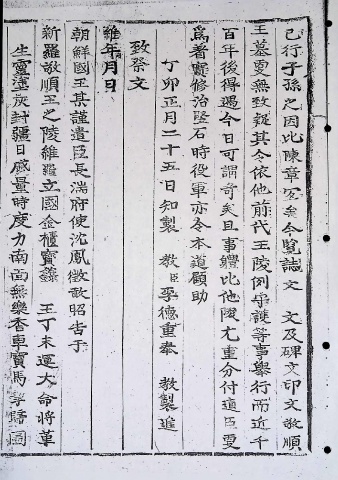 已行子孫之因此陳章宜矣今覽誌文 文及碑文印文敬順
王墓更無致疑其令依他前代王陵例守護等事舉行而近千
百年後得遇今日可謂奇矣且事體比他陵尤重分付道臣更
爲着實修治竪石時役軍亦令本道顧助
丁卯正月二十五日知製 教臣李德重奉 教製進
致祭文
維年月日
朝鮮國王某謹遣臣長湍府使沈鳳徵敢昭告于
新羅敬順王之陵維羅立國金櫃寶籙 王丁末運大命將革
生靈塗炭封疆日蹙量時度力南面無樂香車寶馬 國